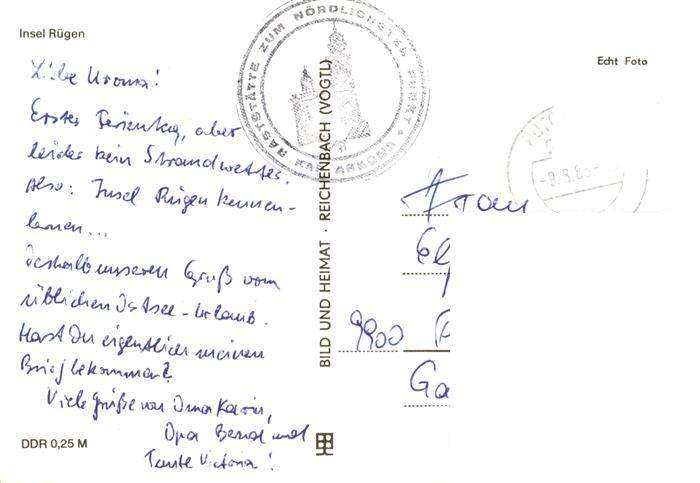 Insel Rügen
Liebe Uroma!
Erster Ferientag, aber
leider kein Strandwetter.
Also: Insel Rügen kennen-
lernen...
Deshalb unseren Gruß vom
üblichen Ostsee-Urlaub.
Hast Du eigentlich meinen
Brief bekommen?
Viele Grüße von Oma Karin,
Opa Bernd und
Tante Victoria!
DDR 0,25 M
RASTSTÄTTE ZUM NÖRDLICHSTEN PUNKT
KAP ARKONA
BILD UND HEIMAT · REICHENBACH (VOGTL)
Echt Foto
Frau
El
9900
Ga